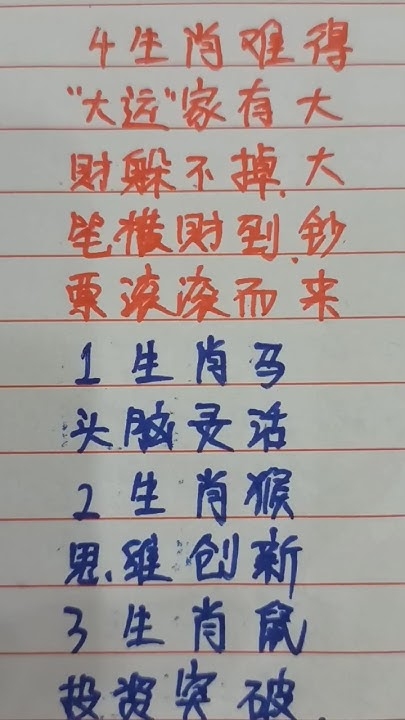 4生肖难得
"大运"家有大
财躲不掉,大
笔横财到,钞
票滚滚而来
1生肖马
头脑灵活
2生肖猴
思维创新
3生肖鼠
投资突破